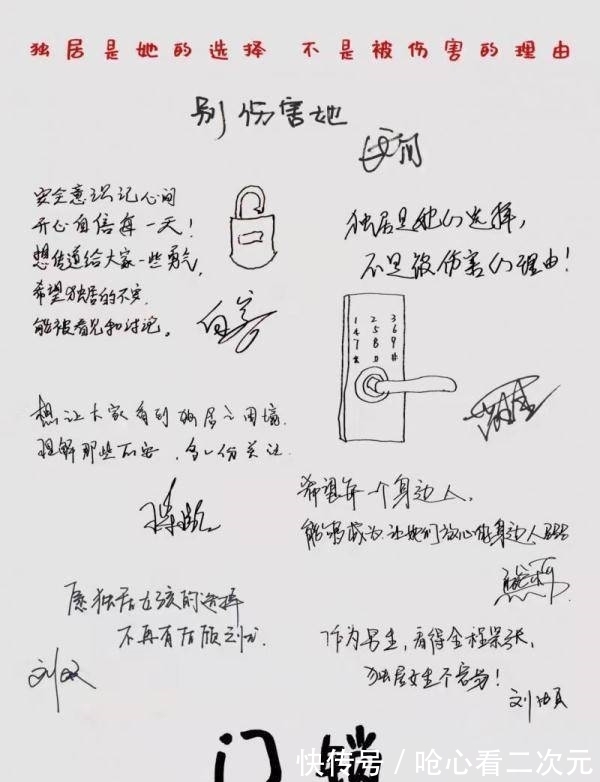 独居是她的选择 不是被伤害的理由
别伤害她
安全意识记心间
开心自信每一天！
想传递给大家一些勇气，
希望独居的不安，
能被看见和讨论。
白客
独居是她们选择，
不是被伤害的理由！
1 2 3
4 5 6
7 8 9
* 0 #
想让大家看到独居之困境，
理解那些不安，多一份关注
希望每一个身边人，
能够成为让她们放心的身边人
愿独居女孩的选择
不再有后顾之忧
作为男生，看得全程紧张，
独居女生不容易！
门锁
快传号 / 呛心看二次元